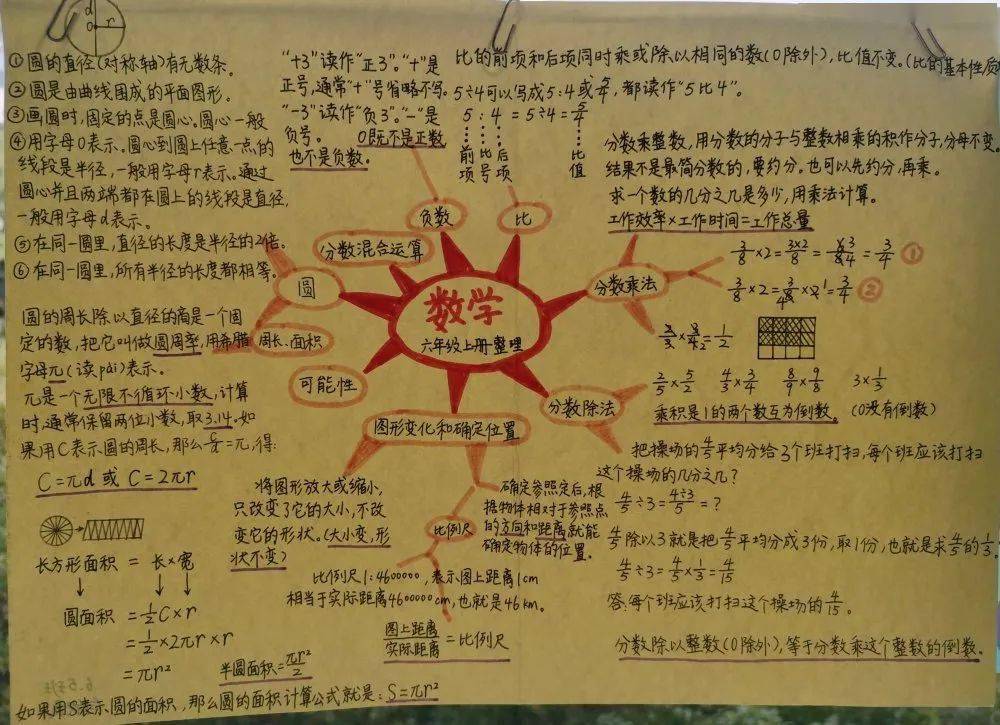 d
O r
①圆的直径(对称轴)有无数条。
②圆是由曲线围成的平面图形。
③画圆时,固定的点是圆心。圆心一般
④用字母O表示。圆心到圆上任意一点的
线段是半径,一般用字母r表示。通过
圆心并且两端都在圆上的线段是直径,
一般用字母d表示。
⑤在同一圆里,直径的长度是半径的2倍。
⑥在同一圆里,所有半径的长度都相等。
圆的周长除以直径的商是一个固
定的数,把它叫做圆周率,用希腊
字母π(读pài)表示。
π是一个无限不循环小数,计算
时,通常保留两位小数,取3.14。如
果用C表示圆的周长,那么C/d=π,得:
C=πd 或 C=2πr
长方形面积 = 长×宽
圆面积 =½C×r
=½×2πr×r
=πr²
半圆面积=πr²/2
如果用S表示圆的面积,那么圆的面积计算公式就是:S=πr²
"+3"读作"正3"。"+"是
正号,通常"+"号省略不写。
"-3"读作"负3"。"-"是
负号。 0既不是正数
也不是负数。
比的前项和后项同时乘或除以相同的数(0除外),比值不变。(比的基本性质)
5÷4可以写成5:4或5/4,都读作"5比4"。
5 : 4 = 5÷4 = 5/4
前项 比号 后项 比值
分数乘整数,用分数的分子与整数相乘的积作分子,分母不变。
结果不是最简分数的,要约分。也可以先约分,再乘。
求一个数的几分之几是多少,用乘法计算。
工作效率×工作时间=工作总量
3/8×2=3×2/8=6 3/8 4=3/4 ①
3/8×2=3/8 4×2 1=3/4 ②
=1/2
2/5×5/2 4/3×3/4 8/9×9/8 3×1/3
乘积是1的两个数互为倒数。(0没有倒数)
负数
比
分数混合运算
圆
分数乘法
数学
六年级上册整理
周长、面积
可能性
分数除法
图形变化和确定位置
比例尺
将图形放大或缩小,
只改变了它的大小,不改
变它的形状。(大小变,形
状不变)
确定参照定后,根
据物体相对于参照点
的方向和距离就能
确定物体的位置。
比例尺1:4600000,表示图上距离1cm
相当于实际距离4600000cm,也就是46km。
图上距离/实际距离=比例尺
把操场的4/5平均分给3个班打扫,每个班应该打扫
这个操场的几分之几?
4/5÷3=4÷3/5=?
4/5除以3就是把4/5平均分成3份,取1份,也就是求4/5的1/3。
4/5÷3=4/5×1/3=4/15
答:每个班应该打扫这个操场的4/15。
分数除以整数(0除外),等于分数乘这个整数的倒数。